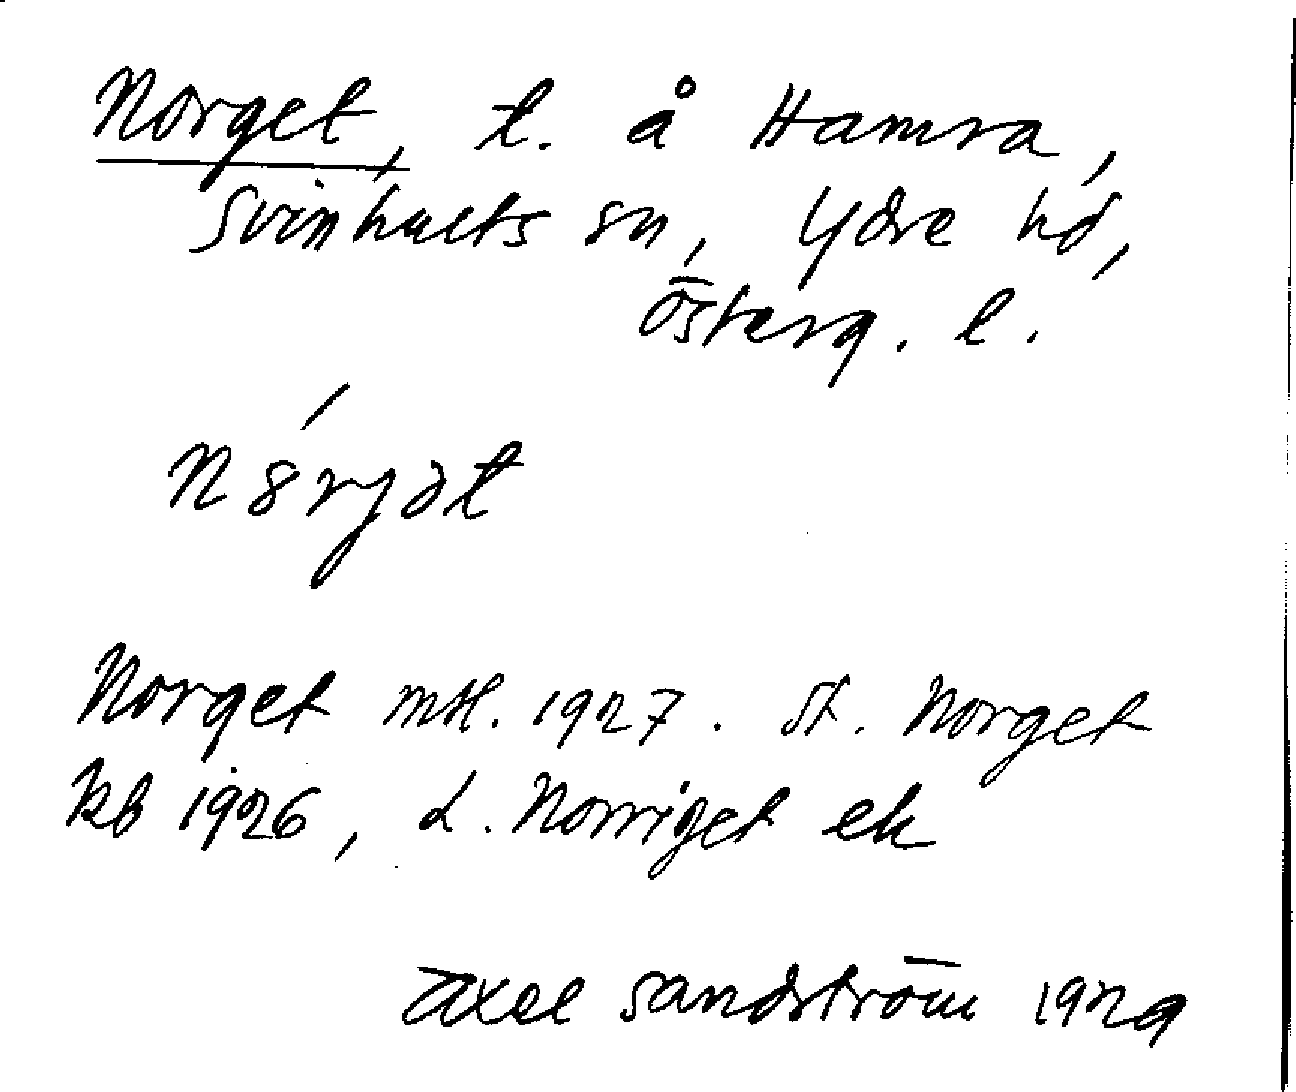 Norget, t. å Hamra,
Svinhults sn, Ydre hd,
Österg. l.
Norget mtl. 1927. St. Norget
kb 1926, L. Norriget ek
Axel Sandström 1929